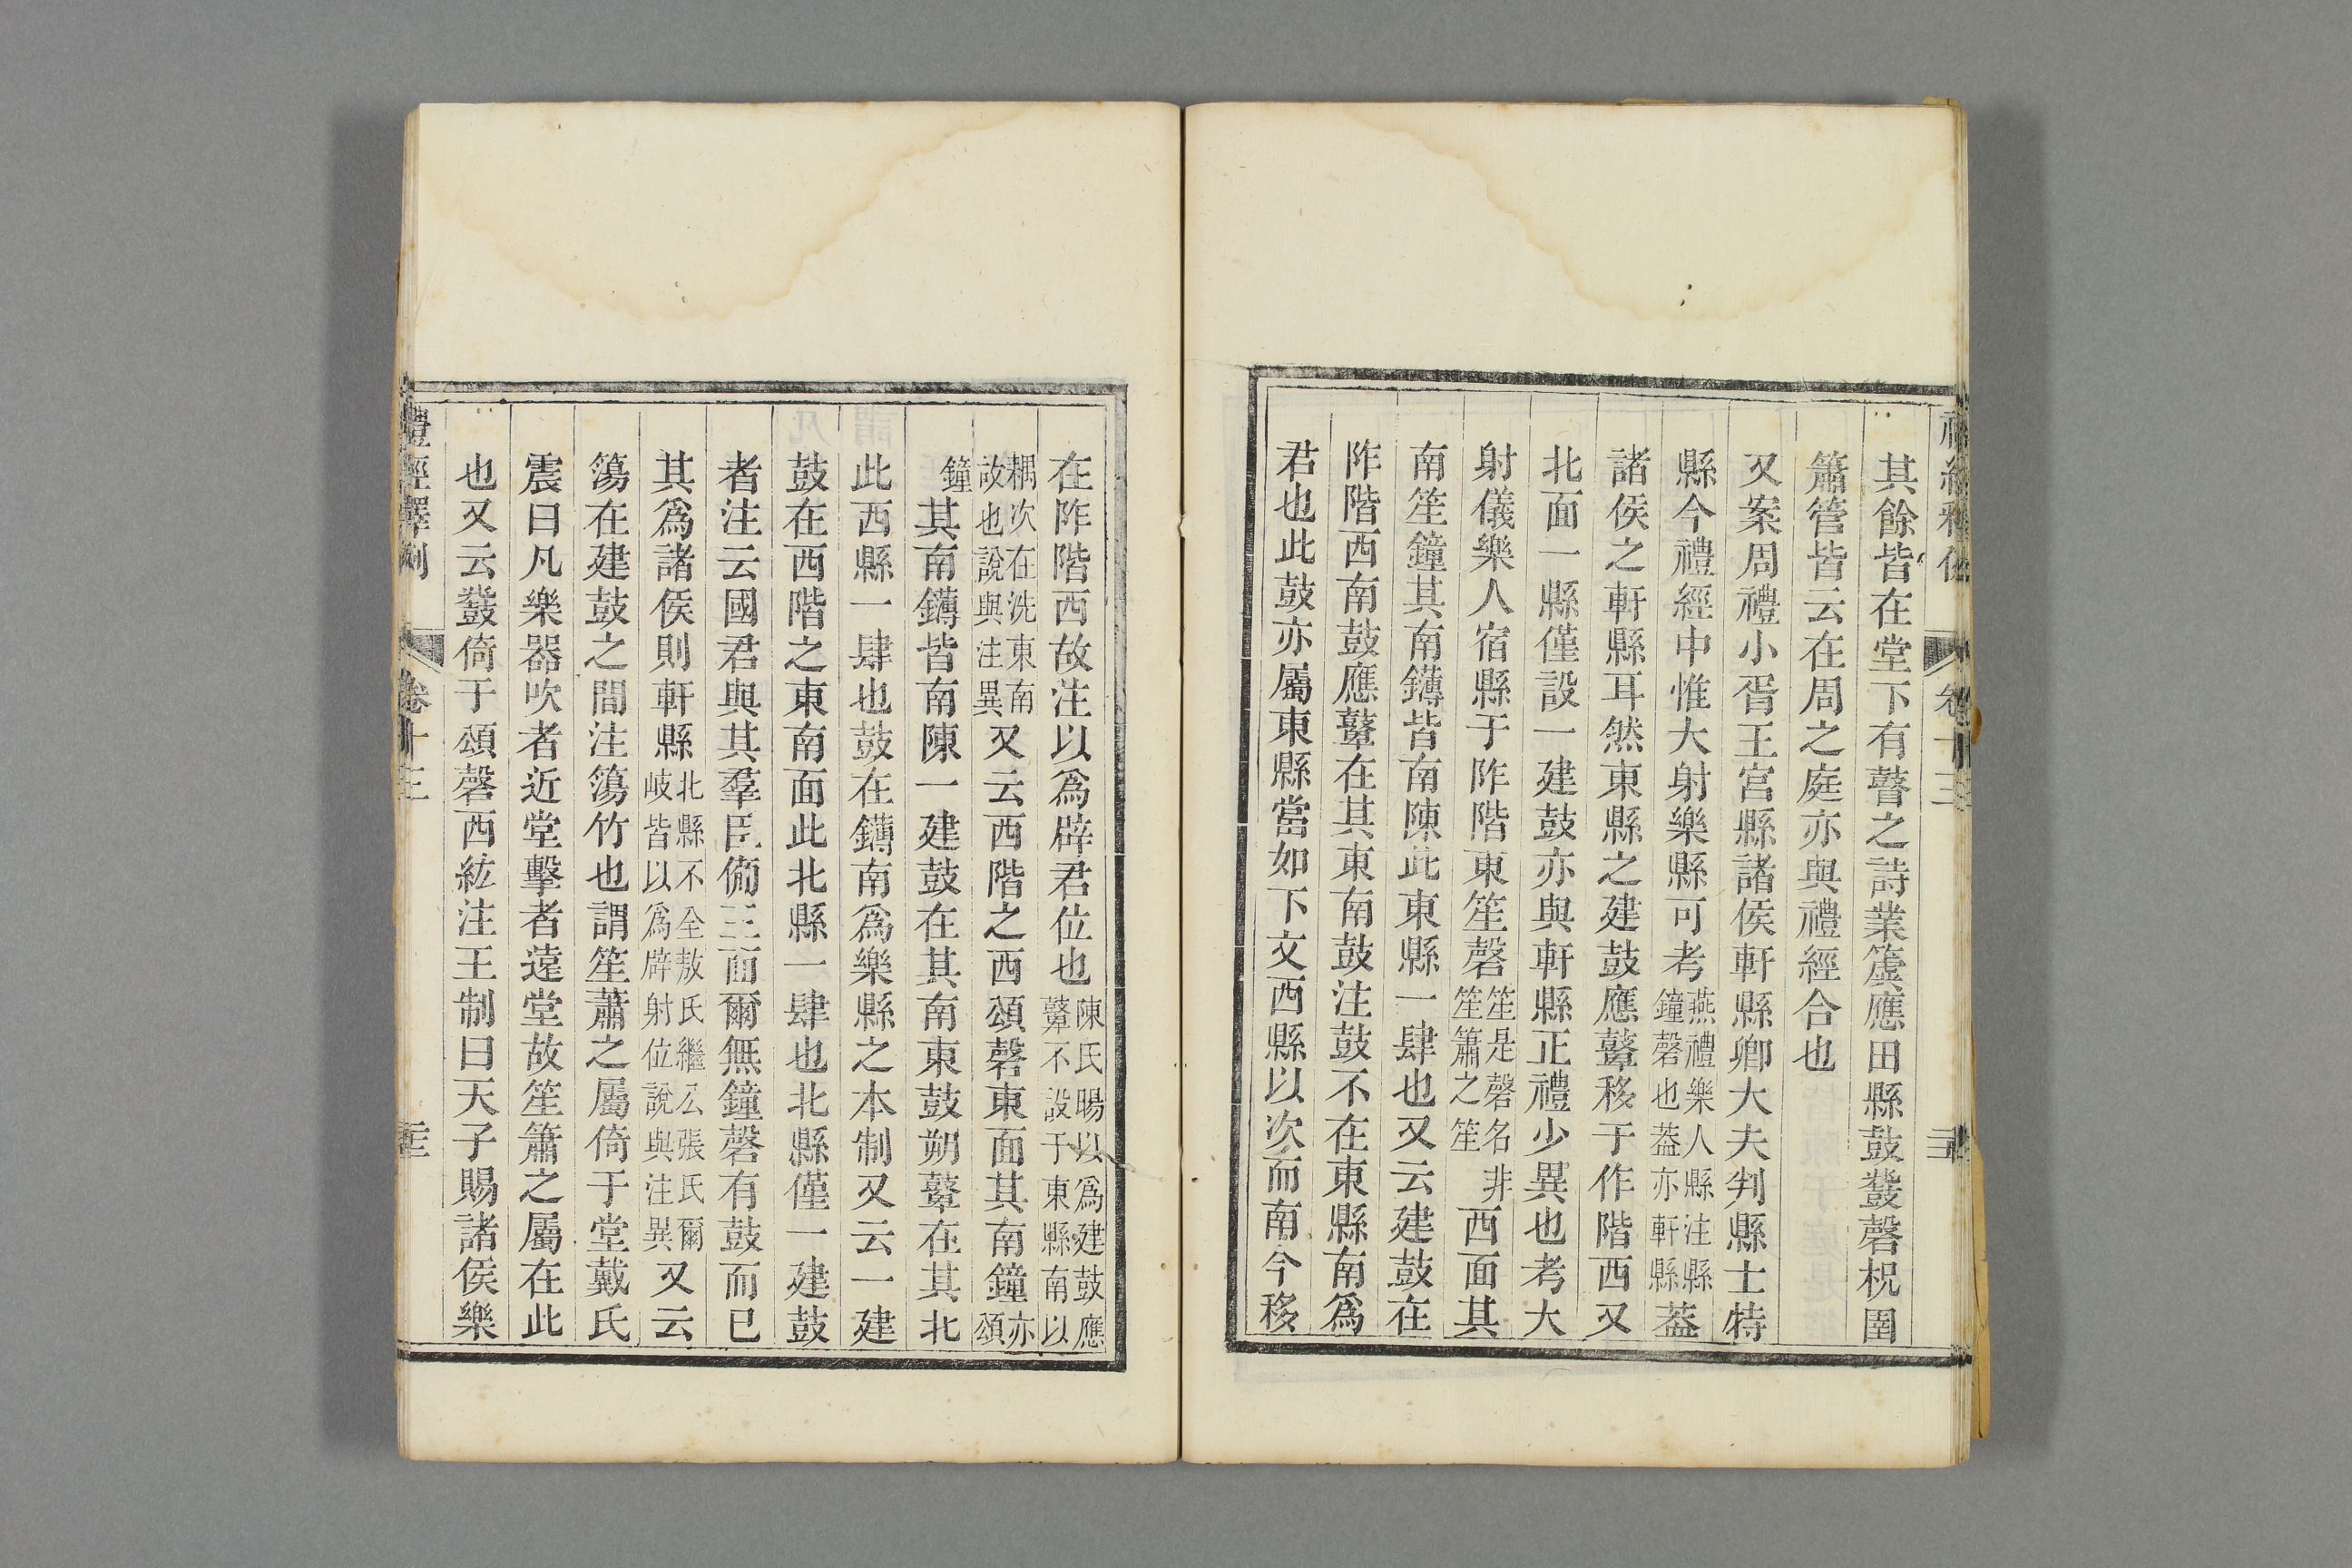 其餘皆在堂下有瞽之詩業簴應田縣鼓鼗磬柷圉
簫管皆云在周之庭亦與禮經合也
又案周禮小胥王宮縣諸侯軒縣卿大夫判縣士特
縣今禮經中惟大射樂縣可考燕禮樂人縣注縣鐘磬也葢亦軒縣葢
諸侯之軒縣耳然東縣之建鼓應鼙移于作階西又
北面一縣僅設一建鼓亦與軒縣正禮少異也考大
射儀樂人宿縣于阼階東笙磬笙是磬名非笙簫之笙西面其
南笙鐘其南鑮皆南陳此東縣一肆也又云建鼓在
阼階西南鼓應鼙在其東南鼓注鼓不在東縣南爲
君也此鼓亦屬東縣當如下文西縣以次而南今移
在阼階西故注以爲辟君位也陳氏暘以爲建鼓應鼙不設于東縣南以
耦次在洗東南故也說與注異又云西階之西頌磬東面其南鐘亦頌
鐘其南鑮皆南陳一建鼓在其南東鼓朔鼙在其北
此西縣一肆也鼓在鑮南爲樂縣之本制又云一建
鼓在西階之東南面此北縣一肆也北縣僅一建鼓
者注云國君與其羣臣備三面爾無鐘磬有鼓而已
其爲諸侯則軒縣北縣不全敖氏繼公張氏爾岐皆以爲辟射位說與注異又云
簜在建鼓之間注簜竹也謂笙蕭之屬倚于堂戴氏
震曰凡樂器吹者近堂擊者遠堂故笙簫之屬在此
也又云鼗倚于頌磬西紘注王制曰天子賜諸侯樂
禮經釋例
卷十三